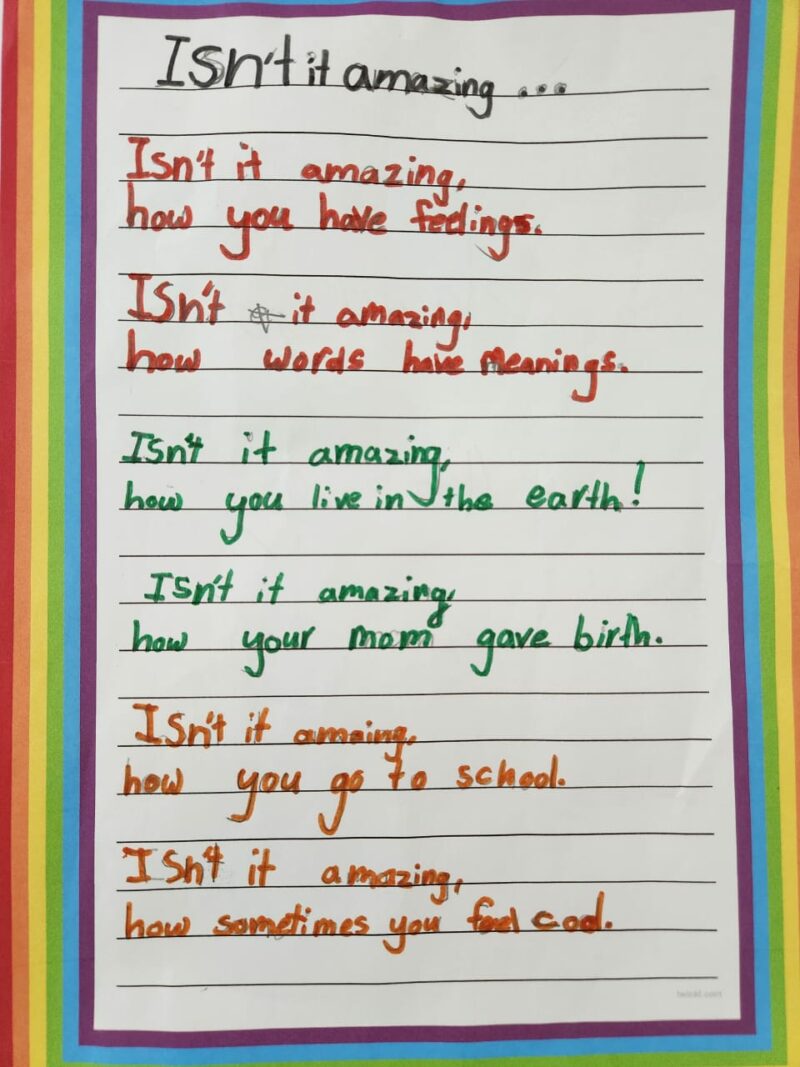 Isn't it amazing ...
Isn't it amazing,
how you have feelings.
Isn't it amazing,
how words have meanings.
Isn't it amazing,
how you live in the earth!
Isn't it amazing,
how your mom gave birth.
Isn't it amaing,
how you go to school.
Isn't it amazing,
how sometimes you feel cool.
twinkl.com